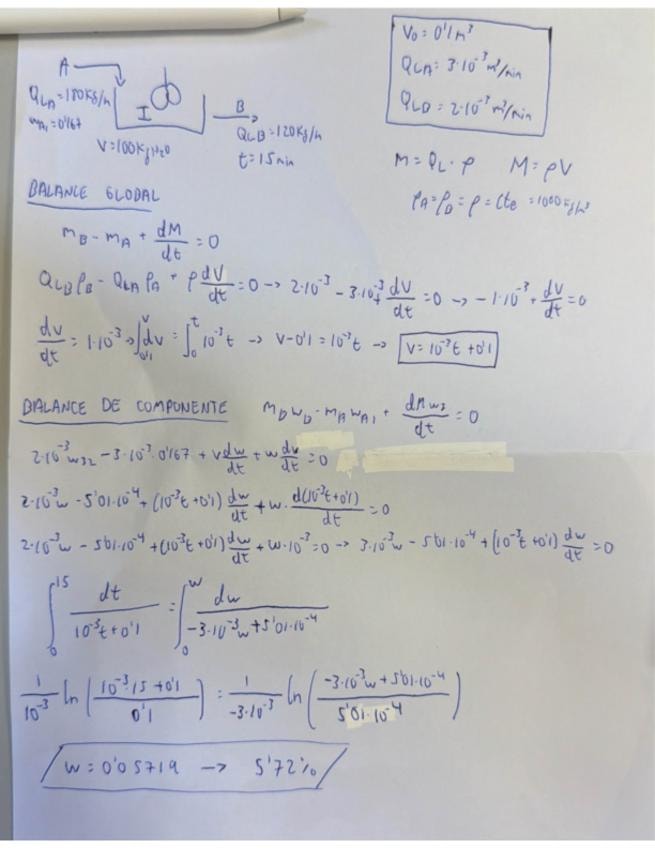 V₀ = 0'1 m³
Q_LA = 3·10⁻³ m³/min
Q_LB = 2·10⁻³ m³/min
A
Q_LA = 180 Kg/h
w_A₁ = 0'167
I
V = 100 Kg H₂O
B
Q_LB = 120 Kg/h
t = 15 min
M = Q_L · ρ M = ρV
ρ_A = ρ_B = ρ = Cte = 1000 Kg/m³
BALANCE GLOBAL
m_B - m_A + dM/dt = 0
Q_LB ρ_B - Q_LA ρ_A + ρ dV/dt = 0 → 2·10⁻³ - 3·10⁻³ + dV/dt = 0 → -1·10⁻³ + dV/dt = 0
dv/dt = 1·10⁻³ → ∫_0'1^V dv = ∫_0^t 10⁻³t → V - 0'1 = 10⁻³t → V = 10⁻³t + 0'1
BALANCE DE COMPONENTE m_B w_B - m_A w_A₁ + dM w₃/dt = 0
2·10⁻³ w₃₂ - 3·10⁻³·0'167 + V dw/dt + w dv/dt = 0
2·10⁻³w - 5'01·10⁻⁴ + (10⁻³t + 0'1) dw/dt + w · d(10⁻³t + 0'1)/dt = 0
2·10⁻³w - 5'01·10⁻⁴ + (10⁻³t + 0'1) dw/dt + w·10⁻³ = 0 → 3·10⁻³w - 5'01·10⁻⁴ + (10⁻³t + 0'1) dw/dt = 0
∫_0^15 dt/(10⁻³t + 0'1) = ∫_0^w dw/(-3·10⁻³w + 5'01·10⁻⁴)
1/10⁻³ ln((10⁻³·15 + 0'1)/0'1) = 1/(-3·10⁻³) ln((-3·10⁻³w + 5'01·10⁻⁴)/(5'01·10⁻⁴))
w = 0'05719 → 5'72%